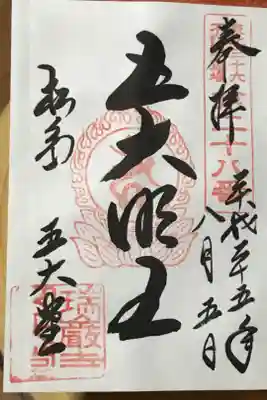 奉拝
二十八番
平成二十五年
八月五日
五大明王
松島
五大堂
瑞巖寺